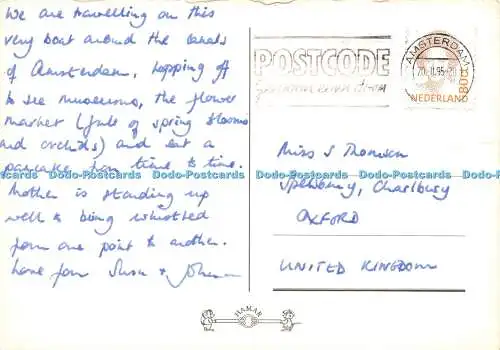 We are travelling on this
very boat around the canals
of Amsterdam, hopping off
to see museums, the flower
market (full of spring blooms
and orchids) and eat a
pancake from time to time.
Mother is standing up
well to being whistled
from one point to another.
Love from Susie +
POSTCODE
AMSTERDAM
20.II.95-20
80c
NEDERLAND
Miss S Thomson
Spelsbury, Charlbury
OXFORD
UNITED KINGDOM
HAMAR
Dodo-Postcards Dodo-Postcards Dodo-Postcards Dodo-Postcards